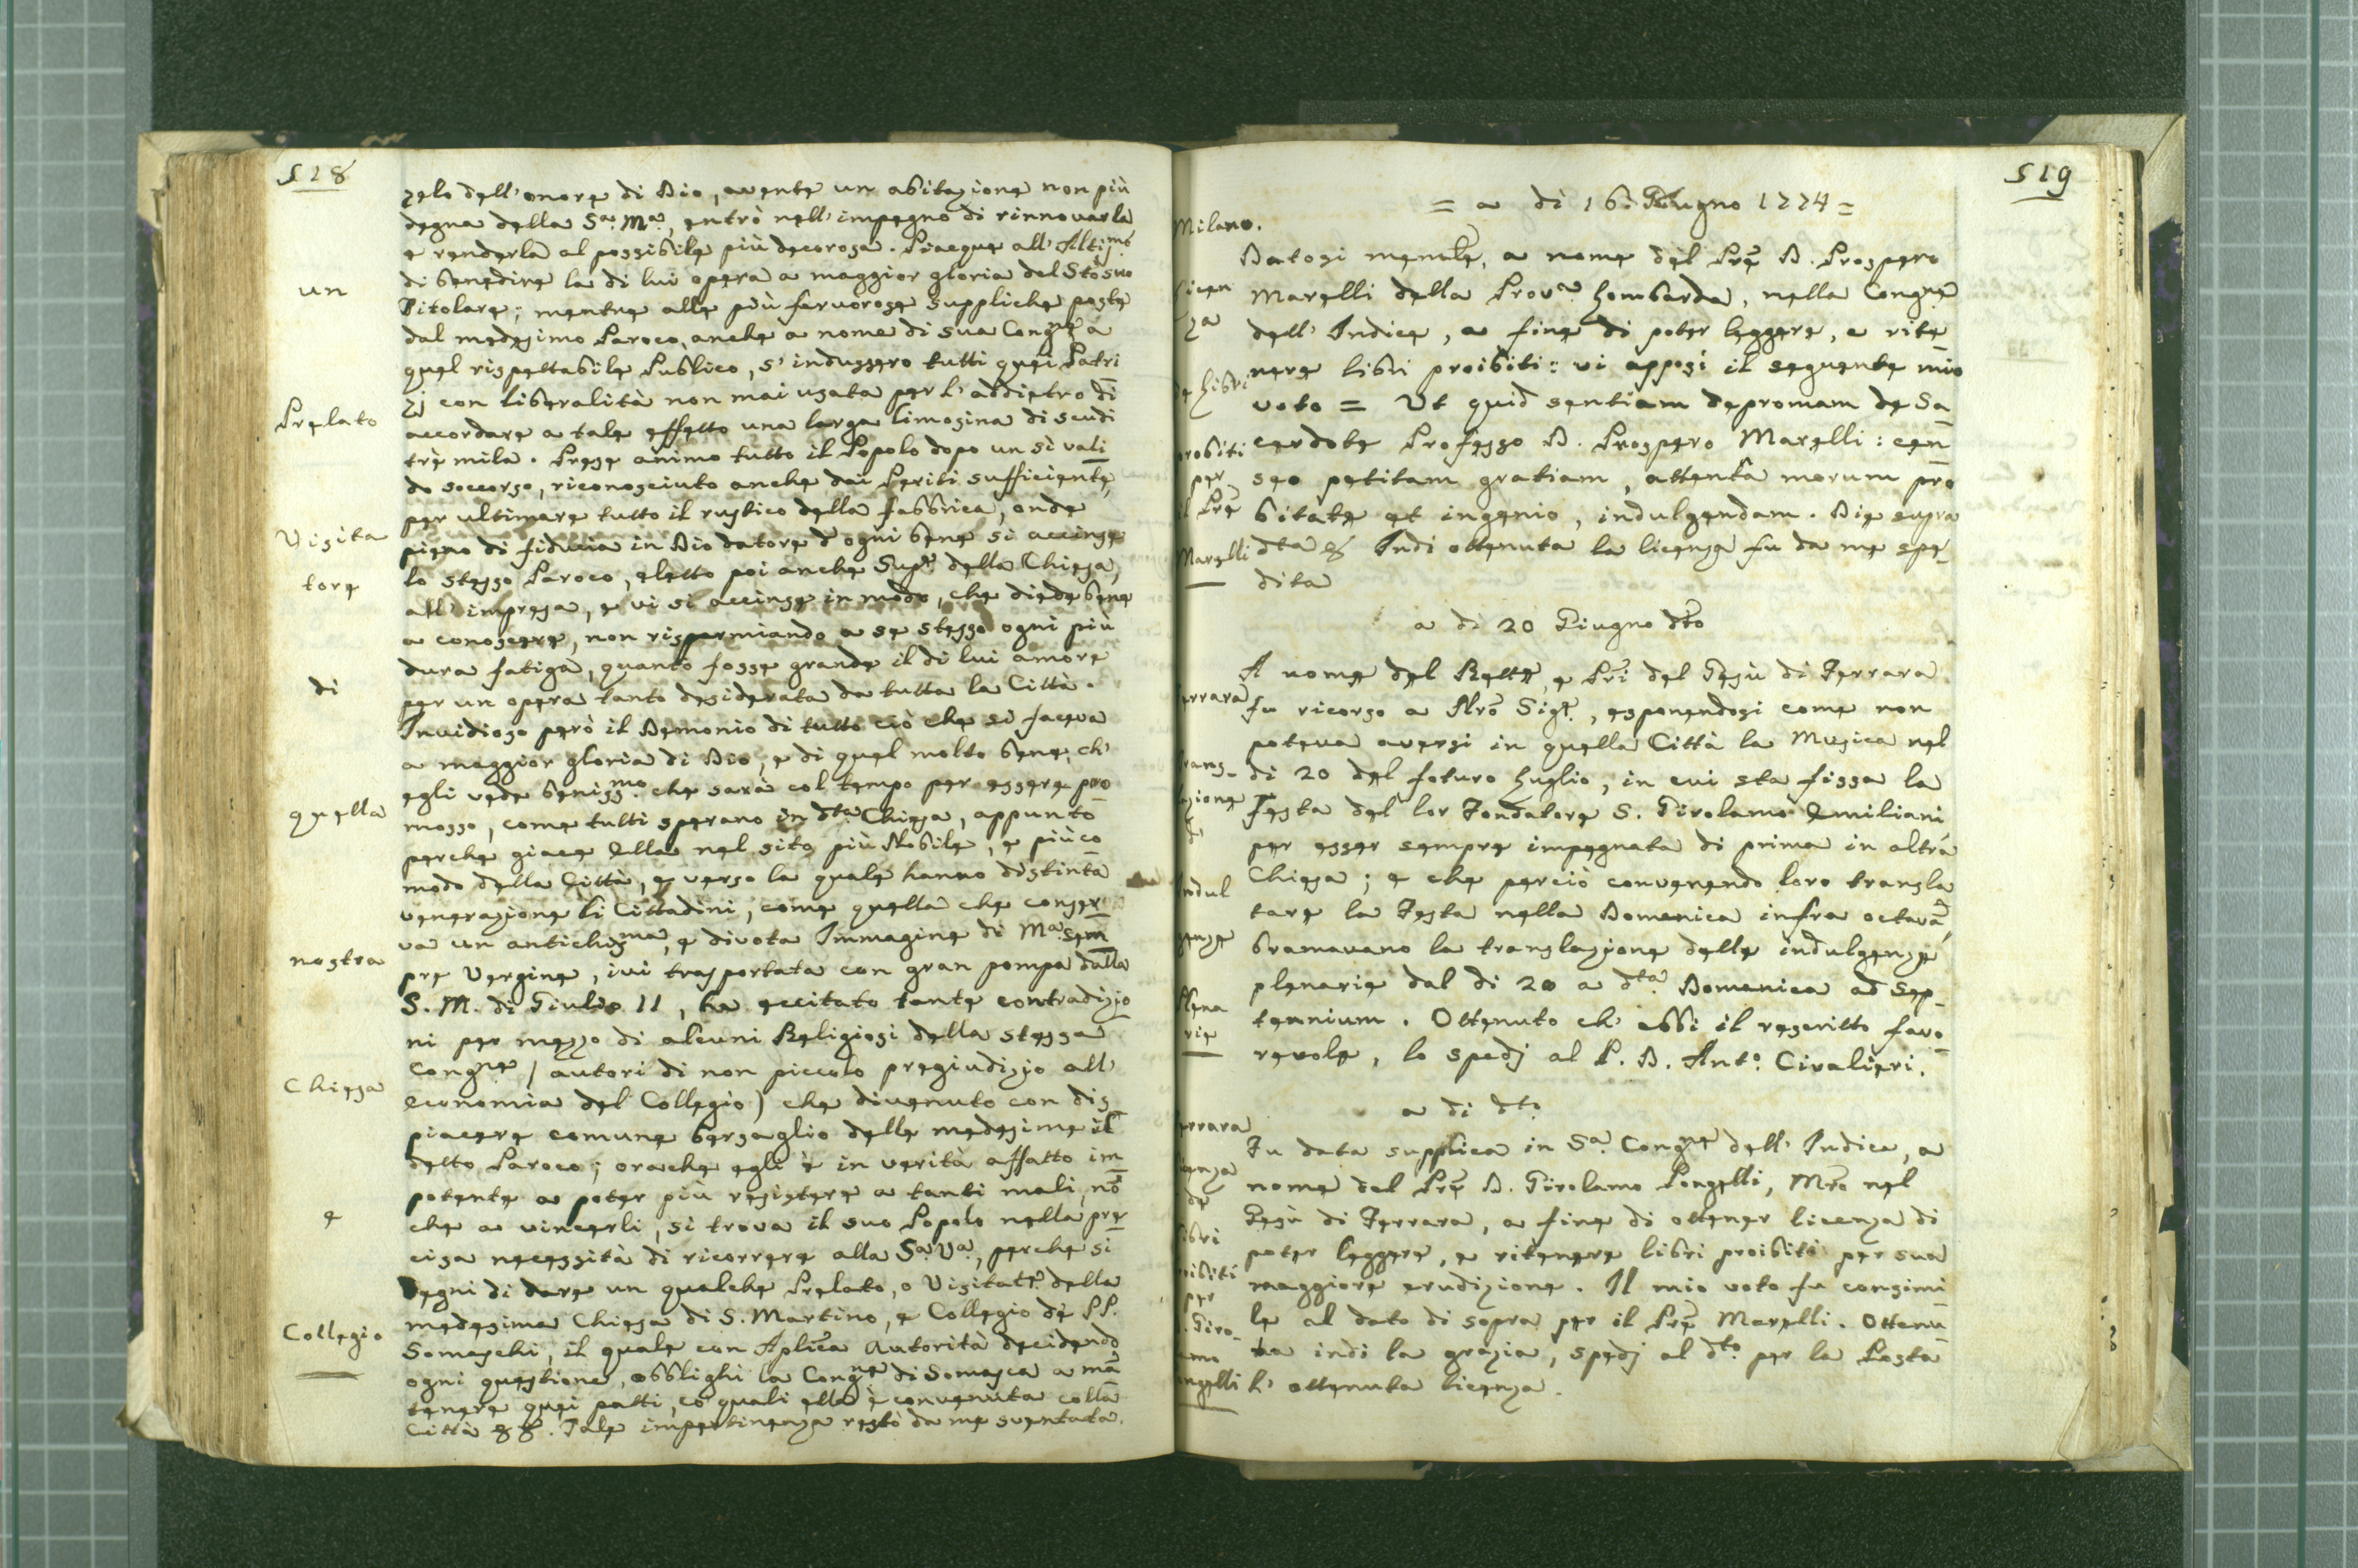 518
zelo dell'onore di Dio, avente un abitazione non più
degna della Sª. Mª., entrò nell'impegno di rinnovarla
e renderla al possibile più decorosa. Piacque all'Altissmo
di benedire la di lui opera a maggior gloria del Sto suo
Titolare; mentre alle più fervorose suppliche poste
dal medesimo Paroco, anche a nome di sua Congne a
quel rispettabile Publico, s'indussero tutti quei Patri
zj con liberalità non mai usata per l'addietro di
accordare a tale effetto una larga limosina di scudi
trè mila. Prese animo tutto il Popolo dopo un sì vali
do soccorso, riconosciuto anche dai Periti sufficiente,
per ultimare tutto il rustico della fabbrica, onde
pieno di fiducia in Dio datore d'ogni bene si accinse
lo stesso Paroco, eletto poi anche Supre della Chiesa,
all'impresa, e vi si accinse in modo, che diede bene
a conoscere, non risparmiando a se stesso ogni più
dura fatiga, quanto fosse grande il di lui amore
per un opera tanto desiderata da tutta la Città.
Invidioso però il Demonio di tutto ciò che si faceva
a maggior gloria di Dio, e di quel molto bene, ch'
egli vede benissmo che sarà col tempo per essere pro
mosso, come tutti sperano in dta Chiesa, appunto
perche giace Ella nel sito più Nobile, e più co
modo della Città, e verso la quale hanno distinta
venerazione li Cittadini, come quella che conser
va un antichissma, e divota Immagine di Mª sem
pre Vergine, ivi trasportata con gran pompa dalla
S. M. di Giulio II, ha eccitato tante contradizio
ni per mezzo di alcuni Religiosi della stessa
Congne / autori di non piccolo pregiudizio all'
economia del Collegio) che divenuto con dis
piacere comune bersaglio delle medesime il
detto Paroco; orache egli è in verità affatto im
potente a poter più resistere a tanti mali, nō
che a vincerli, si trova il suo Popolo nella pre
cisa necessità di ricorrere alla Sª. Vª., perche si
degni di dare un qualche Prelato, o Visitatre. della
medesima Chiesa di S. Martino, e Collegio dé PP.
Somaschi, il quale con Aplica Autorità decidendo
ogni questione, obblighi la Congne di Somasca a mā
tenere quei patti, co' quali ella è convenuta colla
Città &c &c. Tale impertinenza restò da me sventata.
un
Prelato
Visita
tore
di
quella
nostra
Chiesa
e
Collegio
519
= a di 16: Giugno 1774 =
Datosi memle, a nome del Prē D. Prospero
Marelli della Provª Lombarda, nella Congne
dell'Indice, a fine di poter leggere, e rite
nere libri proibiti: vi apposi il seguente mio
voto = Ut quid sentiam depromam de Sa
cerdote Professo D. Prospero Marelli: cen
seo petitam gratiam, attenta morum pro
bitate et ingenio, indulgendam. Die supra
dta &c Indi ottenuta la licenza fu da me spe-
dita
a di 20 Giugno dto
A nome del Rettre, e Pri del Gesù di Ferrara
fu ricorso a Nro Sigre., esponendosi come non
poteva aversi in quella Città la Musica nel
di 20 del futuro Luglio, in cui sta fissa la
Festa del lor Fondatore S. Girolamo Emiliani
per esser sempre impegnata di prima in altra
Chiesa; e che perciò convenendo loro transla
tare la Festa nella Domenica infra octavā,
bramavano la translazione delle indulgenze
plenarie dal di 20 a dta Domenica ad sep-
tennium. Ottenuto ch'ebbi il rescritto favo
revole, lo spedj al P. D. Anto. Civalieri.
a di dto
Fu data supplica in Sª. Congne dell'Indice, a
nome del Prē D. Girolamo Pongelli, Mro nel
Gesù di Ferrara, a fine di ottener licenza di
poter leggere, e ritenere libri proibiti per sua
maggiore erudizione. Il mio voto fu consimi
le al dato di sopra per il Prē Marelli. Ottenu
ta indi la grazia, spedj al dto per la Posta
l'ottenuta licenza.
Milano.
Licen
za
de Libri
probiti
per
il Prē
Marelli
errara
rans-
zione
Indul
genze
Plena
rie
errara
enza
de
ibri
oibiti
per
. Giro-
amo
ngelli